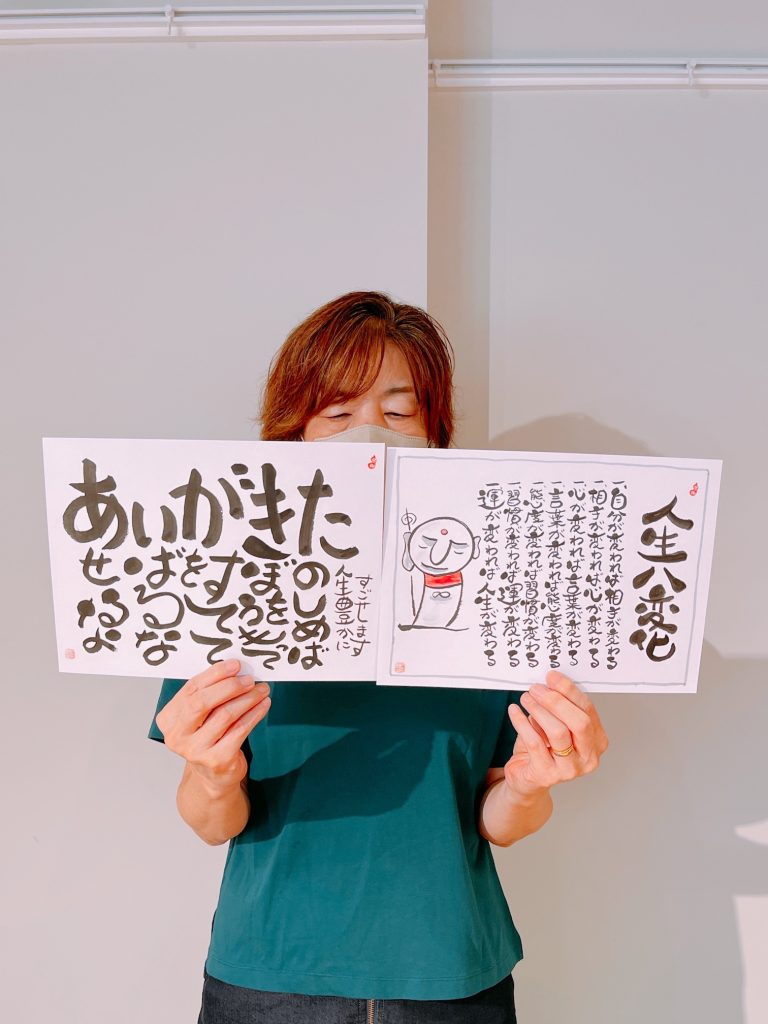 あせるなよ
いばるな
がをすてて
きぼうをもって
たのしめば
人生豊かに
すごせます
人生八変化
一、自分が変われば相手が変わる
一、相手が変われば心が変わる
一、心が変われば言葉が変わる
一、言葉が変われば態度が変わる
一、態度が変われば習慣が変わる
一、習慣が変われば運が変わる
一、運が変われば人生が変わる